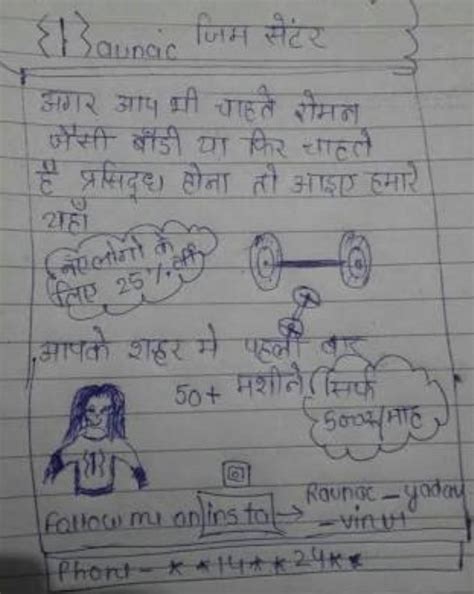 {1}aunac जिम सेंटर
अगर आप भी चाहते रोमन
जैसी बॉडी या फिर चाहते
है प्रसिद्ध होना तो आइए हमारे
यहाँ
नए लोगो के
लिए 25% की
आपके शहर मे पहली बार
50+ मशीने
सिर्फ
500रु/माह
Follow me on insta → Raunac_yadav
Phone - * *14* *24* *